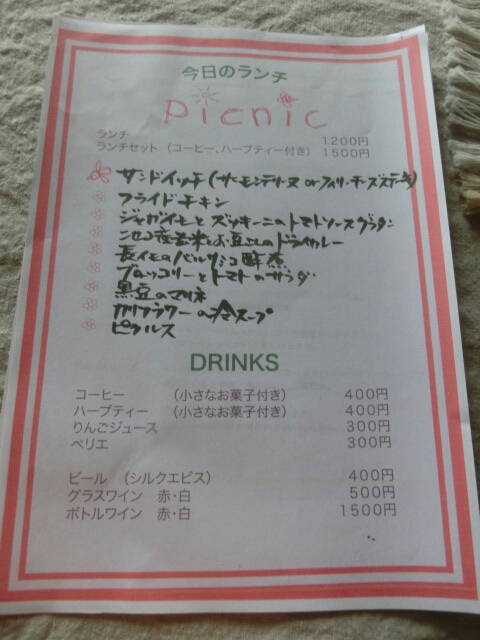 今日のランチ
Picnic
ランチ 1200円
ランチセット（コーヒー、ハーブティー付き） 1500円
サンドイッチ(サーモンテリーヌ orフィリーチーズステーキ)
フライドチキン
ジャガイモとズッキーニのトマトソースグラタン
ニセコ産古米とお豆のドライカレー
長イモのバルサミコ酢煮
ブロッコリーとトマトのサラダ
黒豆のマリネ
カリフラワーの冷スープ
ピクルス
DRINKS
コーヒー （小さなお菓子付き） 400円
ハーブティー （小さなお菓子付き） 400円
りんごジュース 300円
ペリエ 300円
ビール （シルクエビス） 400円
グラスワイン 赤・白 500円
ボトルワイン 赤・白 1500円